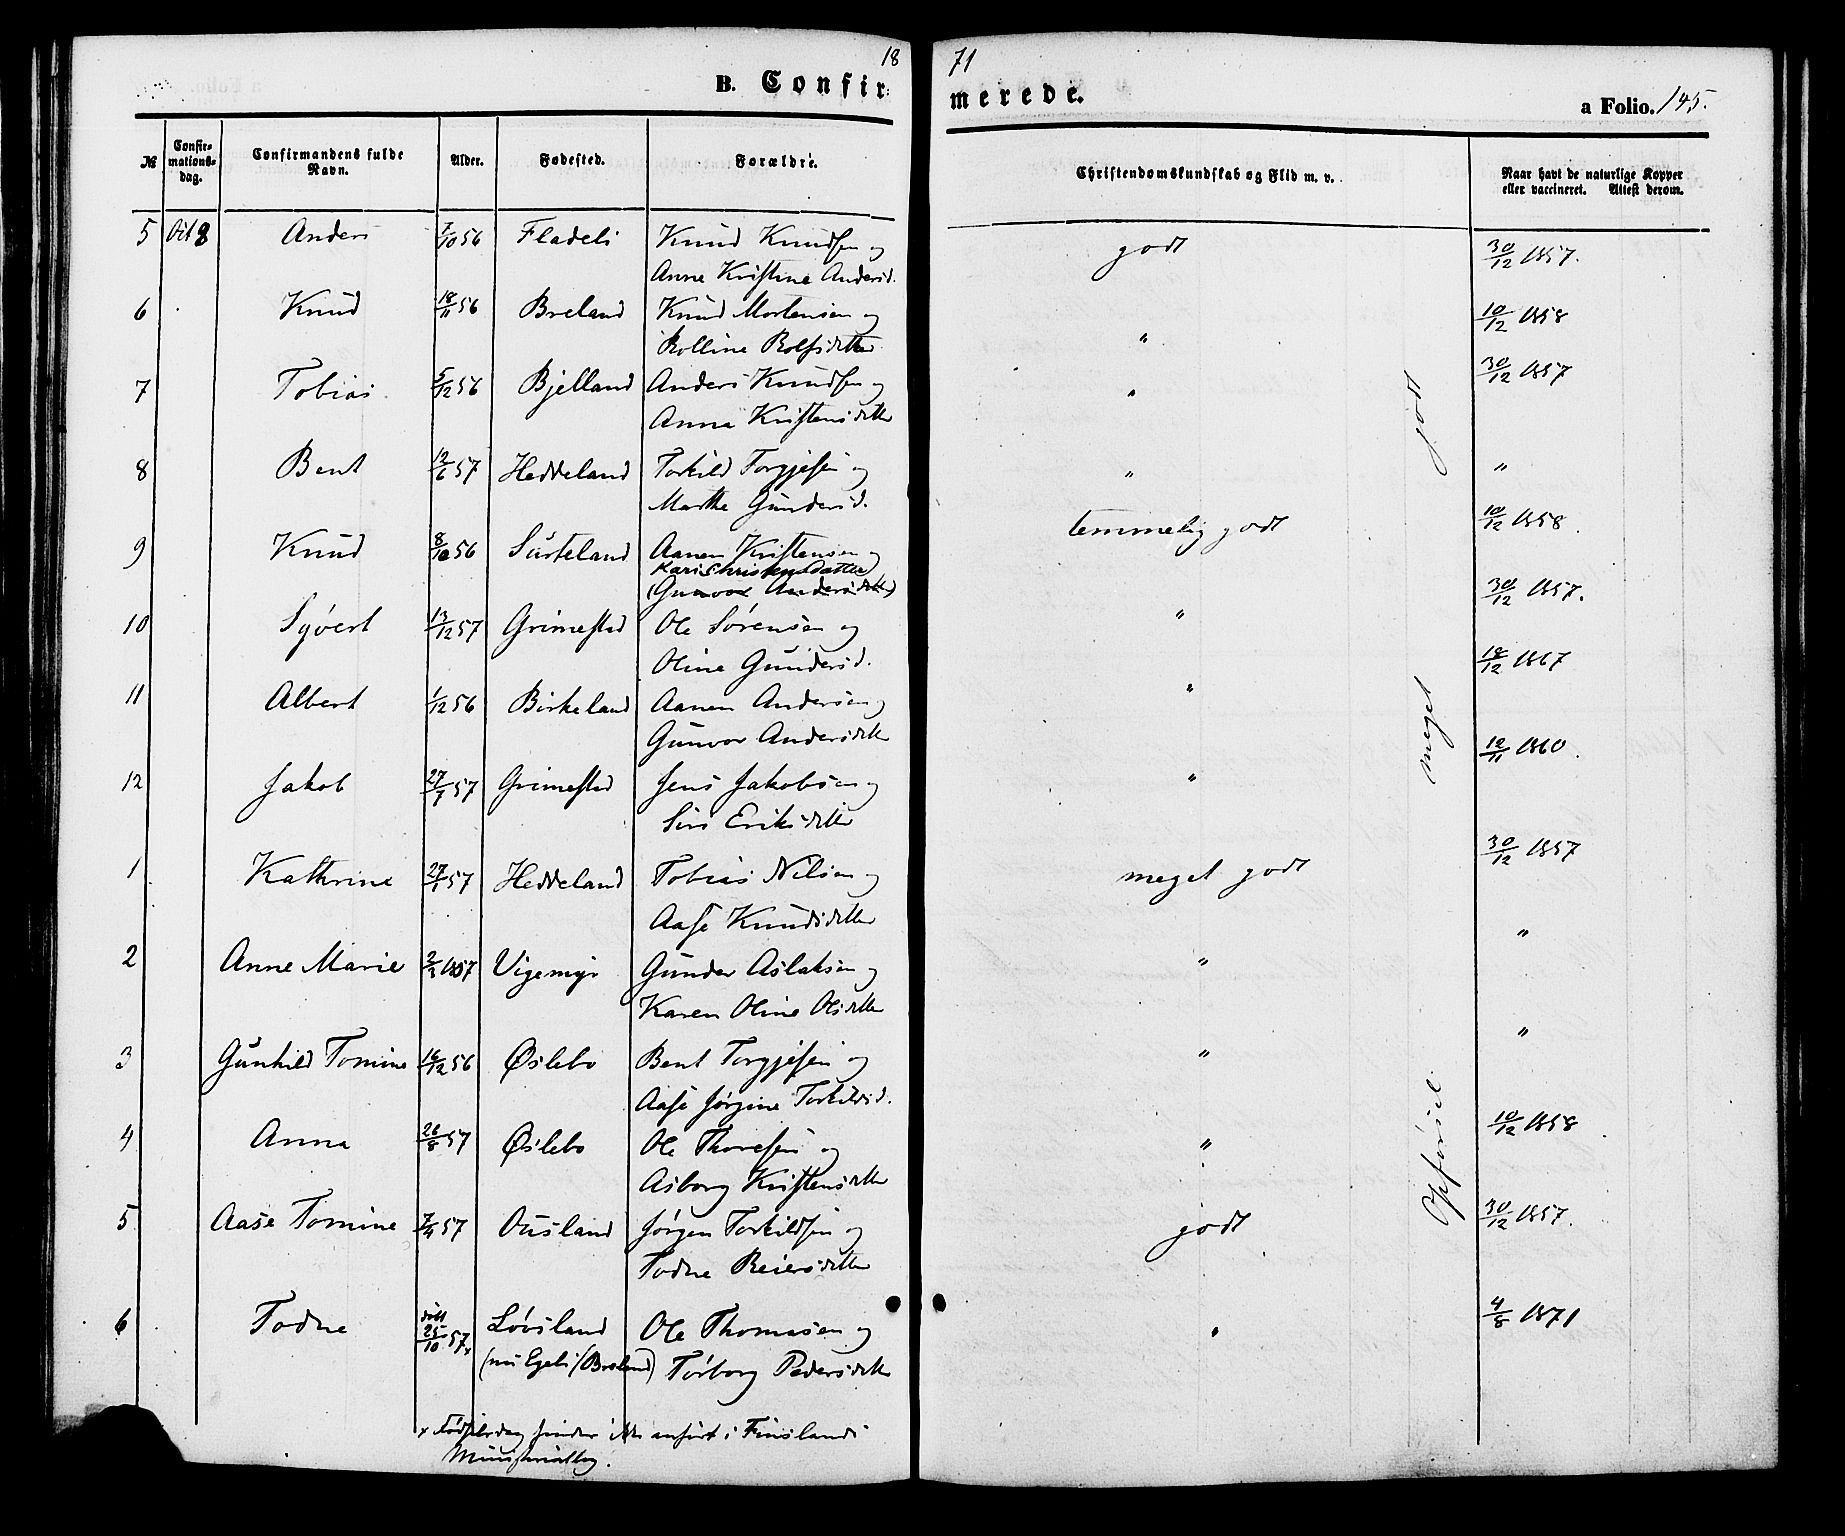 18 71
B. Confirmerede.
a Folio. 145.
№ Confirmationsdag. Confirmandens fulde Navn. Alder. Fødested. Forældre. Christendomskundskab og Flid m. v. Naar havt de naturlige Kopper eller vaccineret. Attest derom.
5 Oct 8 Anders 7/10 56 Fladeli Knud Knudsen og godt 30/12 1857.
Anne Kristine Andersd.
6 Knud 18/11 56 Breland Knud Mortensen og " 10/12 1858
Rolline Rolfsdatter
7 Tobias 5/12 56 Bjelland Anders Knudsen og " 30/12 1857
Anna Kristensdatter
8 Bent 12/6 57 Heddeland Torkild Torgjesen og " "
Marthe Gundersd.
9 Knud 8/10 56 Surteland Aanen Kristensen og temmelig godt 10/12 1858.
Kari Christensdatter
(Gunvor Andersdatter)
10 Syvert 13/12 57 Grimestad Ole Sørensen og " 30/12 1857.
Oline Gundersd.
11 Albert 1/12 56 Birkeland Aanen Andersen og " 18/12 1867
Gunvor Andersdatter
12 Jakob 27/7 57 Grimestad Jens Jakobsen og " 12/11 1860.
Siri Eriksdatter
1 Kathrine 27/1 57 Heddeland Tobias Nilsen og meget godt 30/12 1857
Aase Knudsdatter
2 Anne Marie 2/2 1857 Vigemyr Gunder Aslaksen og " "
Karen Oline Olsdatter
3 Gunhild Tomine 16/12 56 Øslebo Bent Torgjesen og " "
Aase Jørgine Torkildsd.
4 Anna 26/8 57 Øslebo Ole Thoresen og " 10/12 1858
Asborg Kristensdatter
5 Aase Tomine 7/4 57 Ousland Jørgen Torkildsen og godt 30/12 1857.
Todne Reiersdatter
6 Todne døbt 25/10 57 x Løvsland Ole Thomasen og " 4/8 1871
(nu Egeli/Breland) Torborg Pedersdatter
x Fødselsdag findes ikke anført i Finslands
Ministerialbog.
Opførsel meget godt